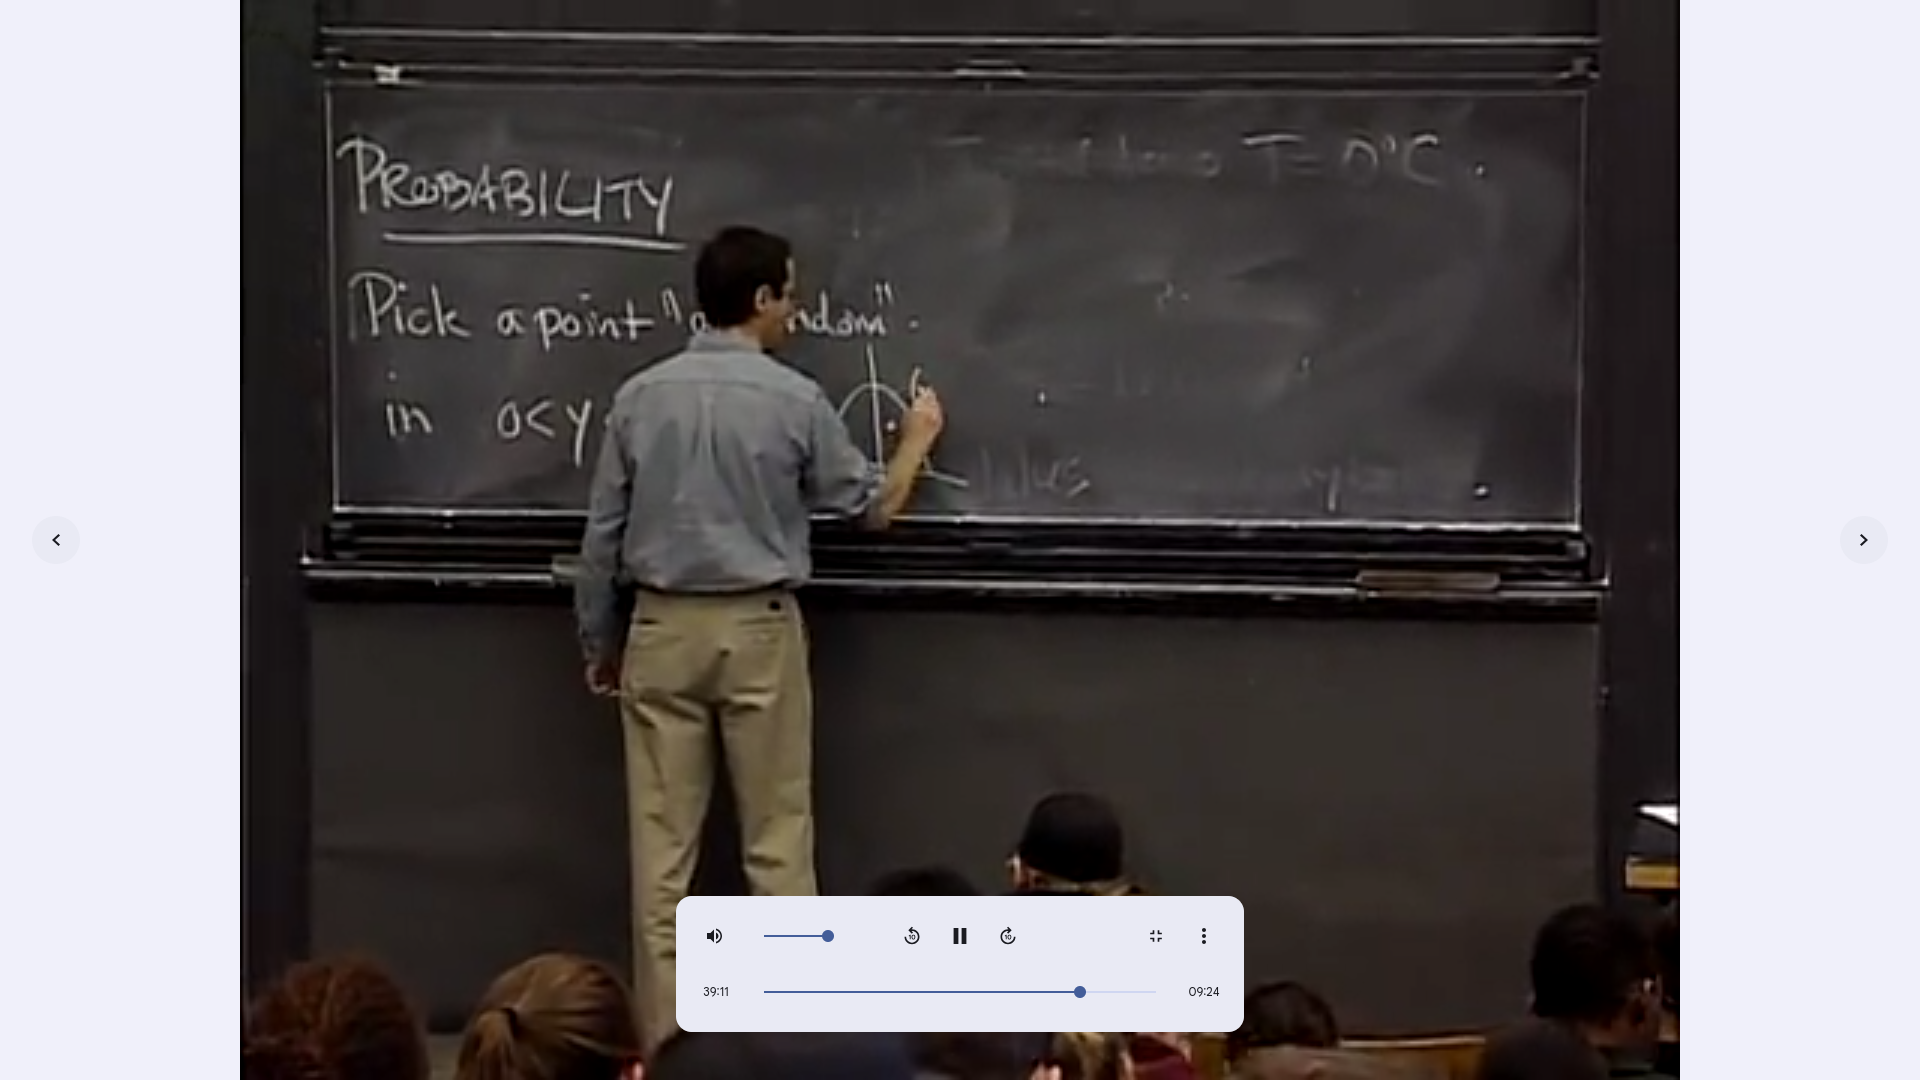 T = 0°C
PROBABILITY
Pick a point "a ndom"
in 0<y
39:11
09:24